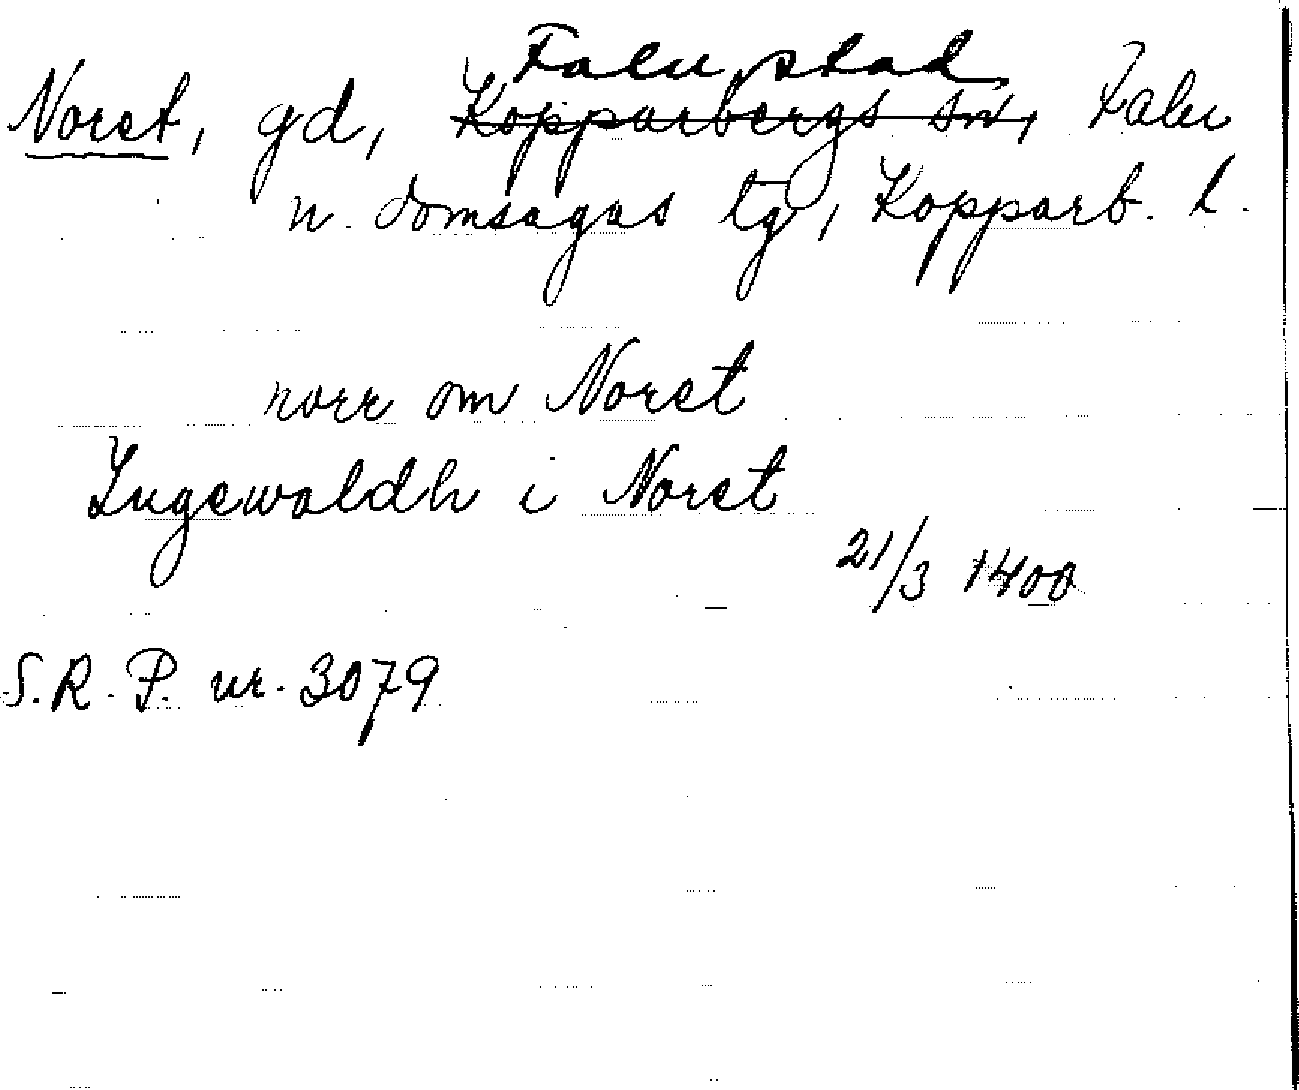 Falu stad,
Noret, gd, Kopparbergs sn, Falu
n. domsagas tg, Kopparb. l.
norr om Noret
Ingewaldh i Noret
21/3 1400
S.R.P. nr. 3079